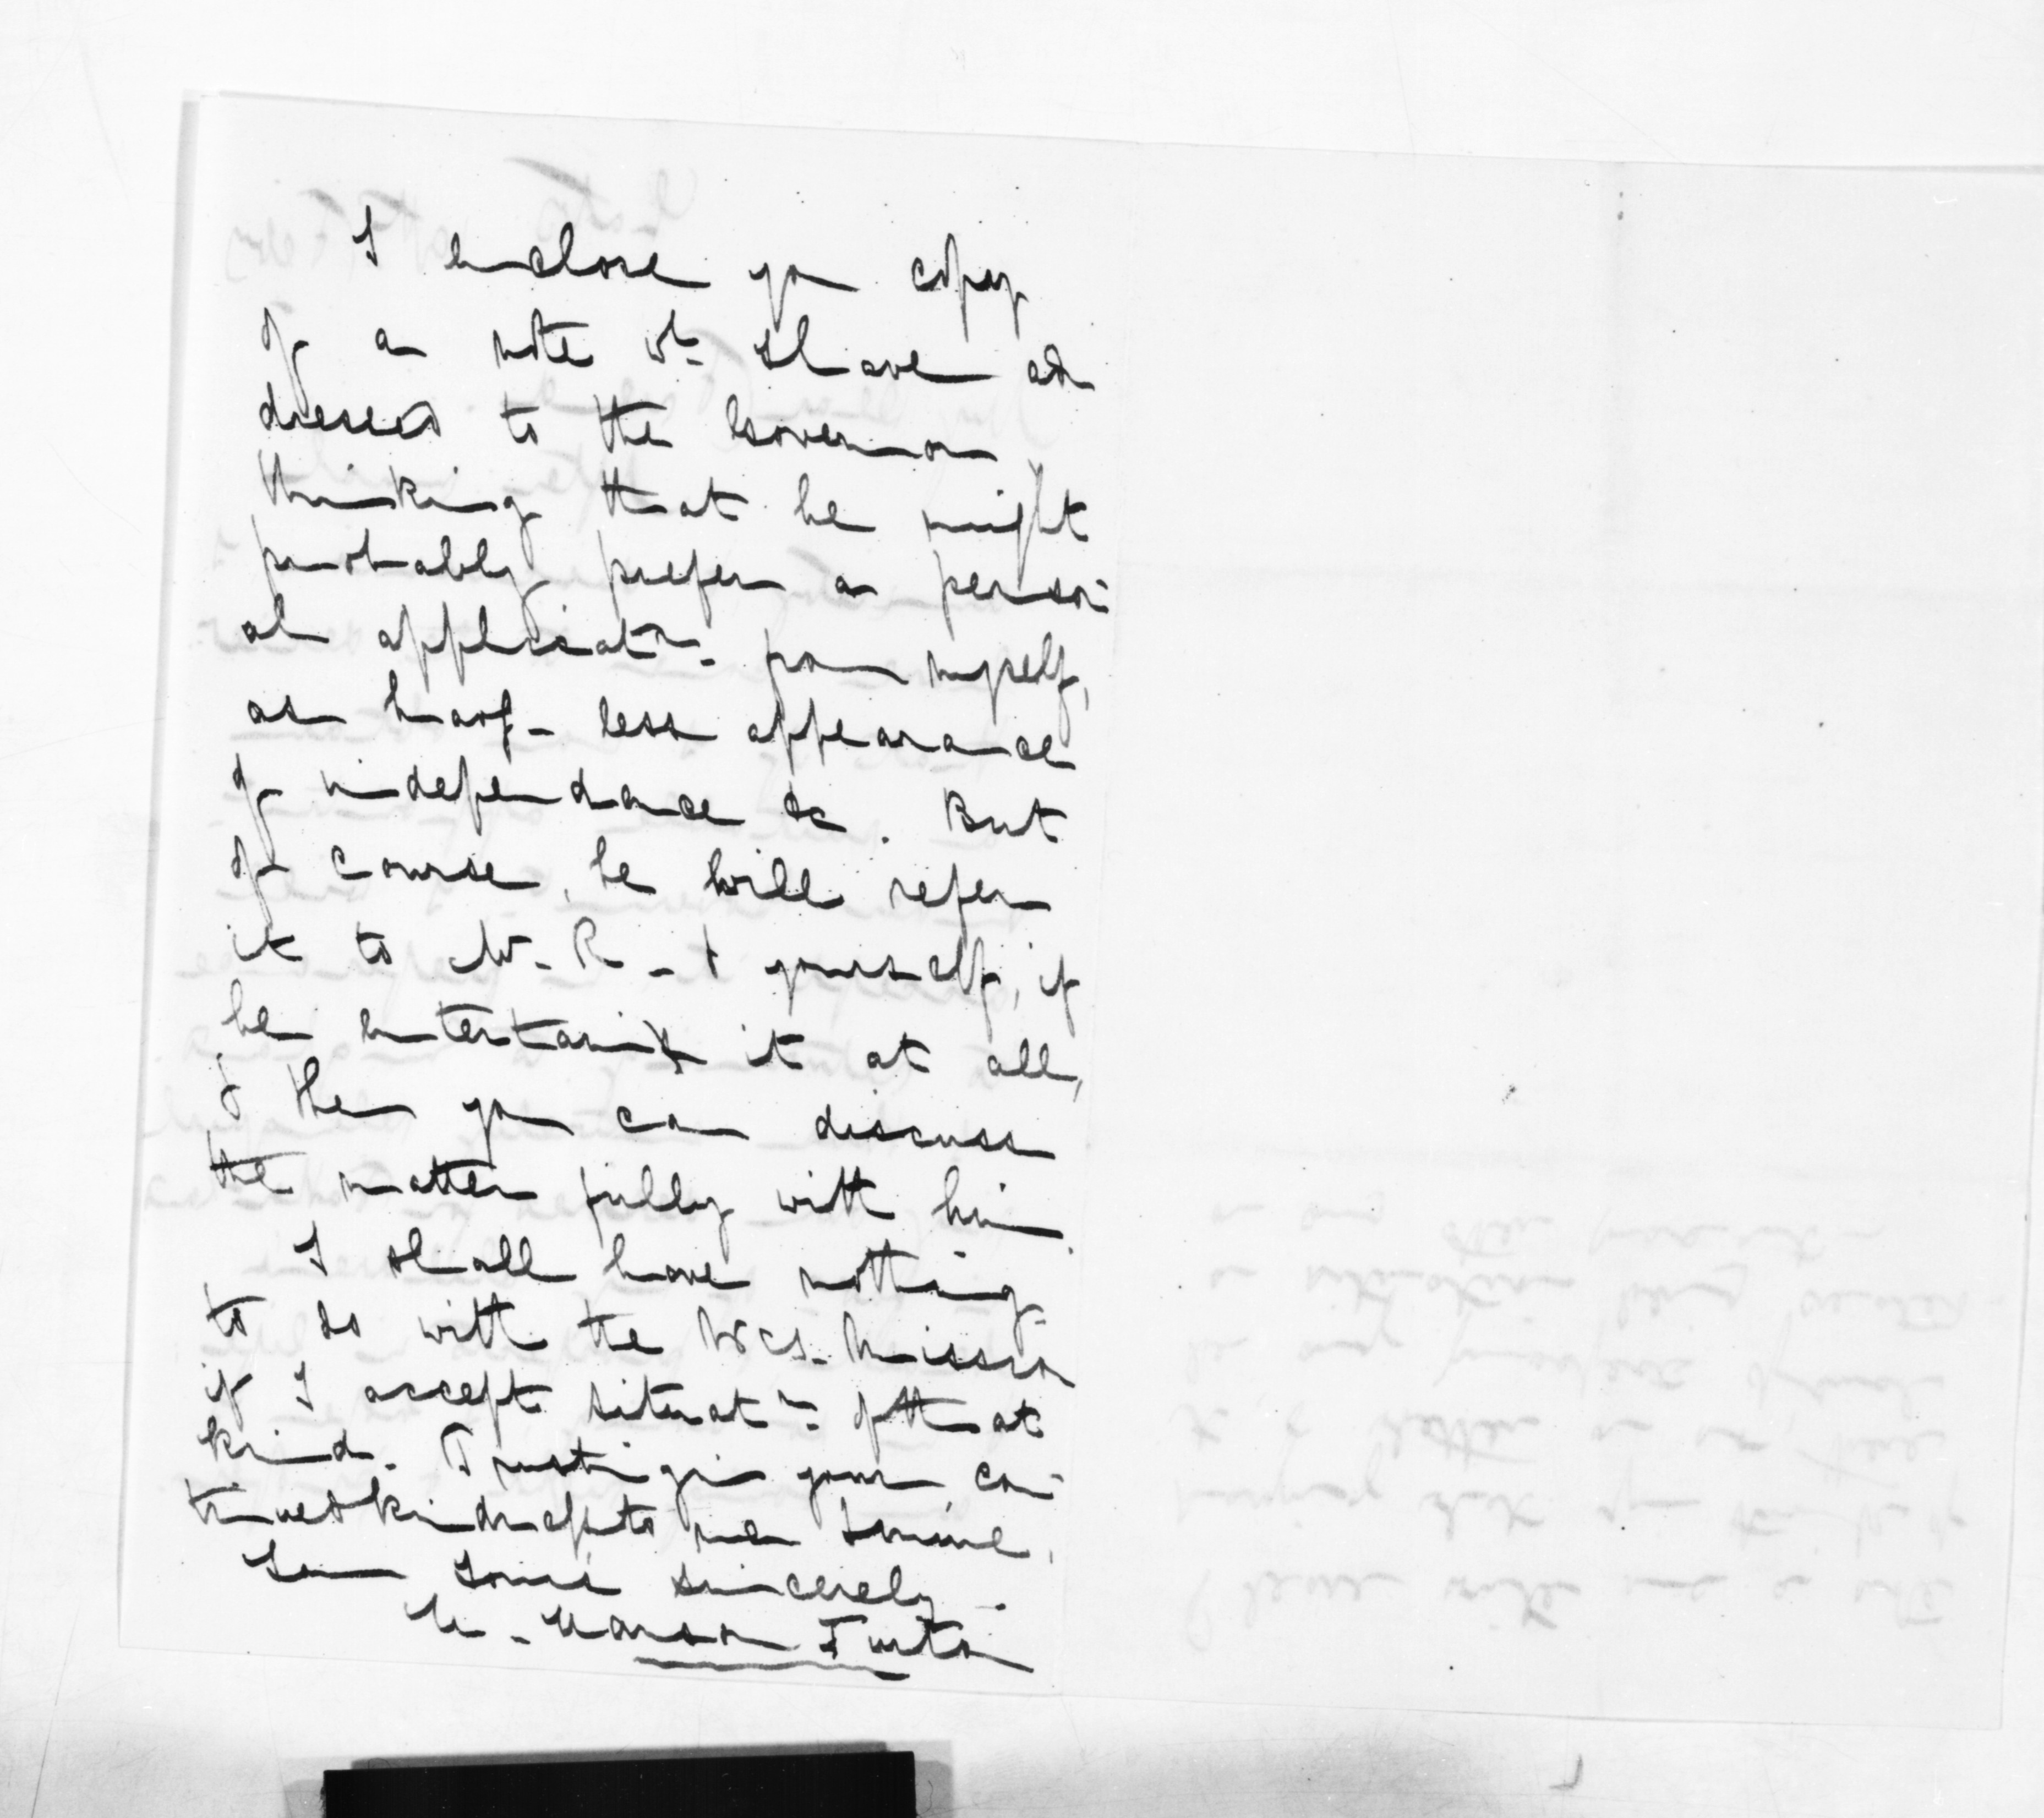 I enclose you copy
of a note wh. I have ad
dressed to the Governor
thinking that he might
probably prefer a person-
al applicatn. from myself,
as havg- less appearance
of independance &c. But
of course, he will refer
it to Mr. R- & yourself, if
he entertain it at all,
& then you can discuss
the matter fully with him.
I shall have nothing
to do with the Wes. Mission
if I accept situatn. of that
kind. Trusting in your con-
tinued kindness to me & mine,
I am Yours sincerely